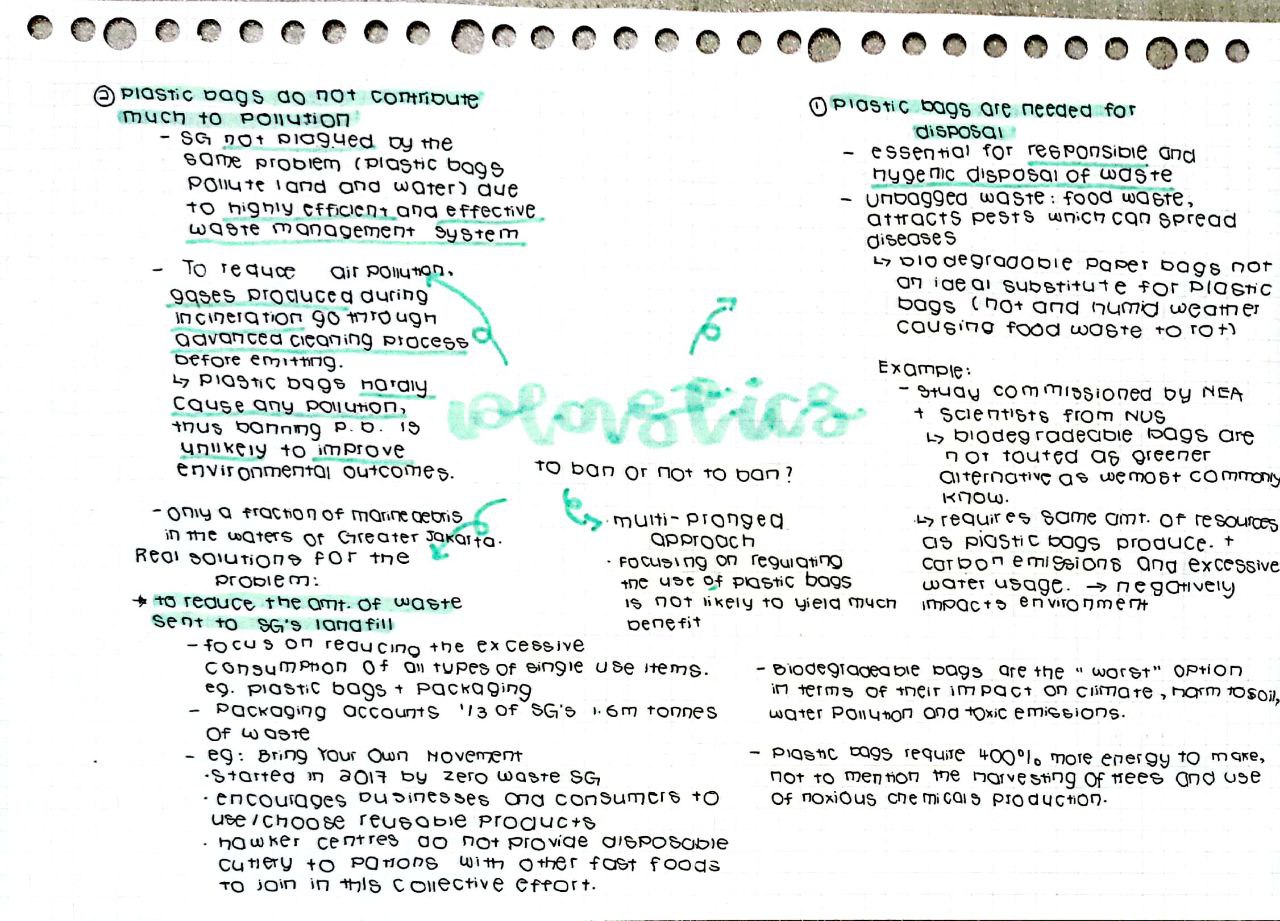 plastics
to ban or not to ban?
① plastic bags are needed for
disposal
- essential for responsible and
hygenic disposal of waste
- unbagged waste: food waste,
attracts pests which can spread
diseases
↳ biodegradable paper bags not
an ideal substitute for plastic
bags (hot and humid weather
causing food waste to rot)
Example:
- study commissioned by NEA
+ scientists from NUS
↳ biodegradeable bags are
not touted as greener
alternative as we most commonly
know.
↳ requires same amt. of resources
as plastic bags produce. +
carbon emissions and excessive
water usage. → negatively
impacts environment
- Biodegradeable bags are the "worst" option
in terms of their impact on climate, harm to soil,
water pollution and toxic emissions.
- plastic bags require 400% more energy to make,
not to mention the harvesting of trees and use
of noxious chemicals production.
② plastic bags do not contribute
much to pollution
- SG not plagued by the
same problem (plastic bags
pollute land and water) due
to highly efficient and effective
waste management system
- To reduce air pollution,
gases produced during
incineration go through
advanced cleaning process
before emitting.
↳ plastic bags hardly
cause any pollution,
thus banning p.b. is
unlikely to improve
environmental outcomes.
- only a fraction of marine debris
in the waters of Greater Jakarta.
Real solutions for the
problem:
→ to reduce the amt. of waste
sent to SG's landfill
- focus on reducing the excessive
consumption of all types of single use items.
eg. plastic bags + packaging
- packaging accounts 1/3 of SG's 1.6m tonnes
of waste
- eg: Bring Your Own Movement
· started in 2017 by zero waste SG
· encourages businesses and consumers to
use/choose reusable products
· hawker centres do not provide disposable
cutlery to patrons with other fast foods
to join in this collective effort.
multi-pronged
approach
· focusing on regulating
the use of plastic bags
is not likely to yield much
benefit